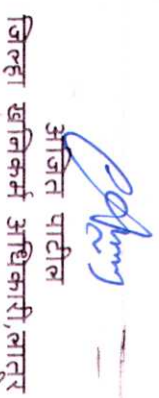 अजित पाटील
जिल्हा खनिकर्म अधिकारी,लातूर